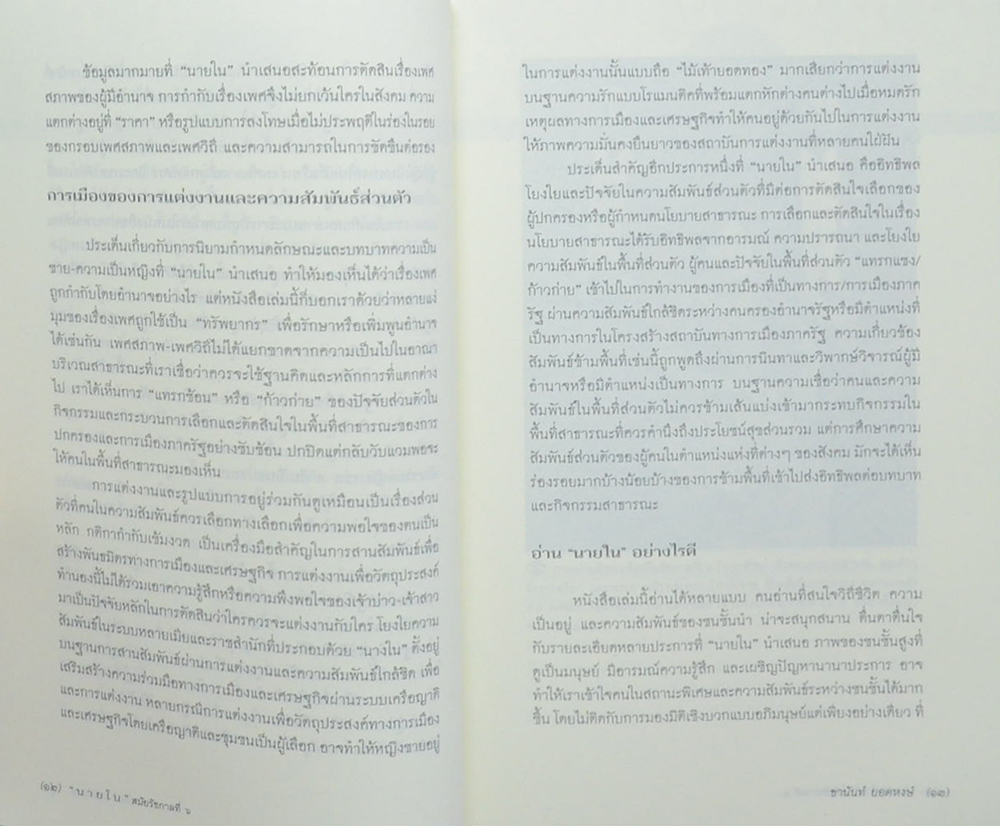 ข้อมูลมากมายที่ “นายใน” นำเสนอสะท้อนการตัดสินเรื่องเพศ
สภาพของผู้มีอำนาจ การกำกับเรื่องเพศจึงไม่ยกเว้นใครในสังคม ความ
แตกต่างอยู่ที่ “ราคา” หรือรูปแบบการลงโทษเมื่อไม่ประพฤติในร่องในรอย
ของกรอบเพศสภาพและเพศวิถี และความสามารถในการขัดขืนต่อรอง
การเมืองของการแต่งงานและความสัมพันธ์ส่วนตัว
ประเด็นเกี่ยวกับการนิยามกำหนดลักษณะและบทบาทความเป็น
ชาย-ความเป็นหญิงที่ “นายใน” นำเสนอ ทำให้มองเห็นได้ว่าเรื่องเพศ
ถูกกำกับโดยอำนาจอย่างไร แต่หนังสือเล่มนี้ก็บอกเราด้วยว่าหลายแง่
มุมของเรื่องเพศถูกใช้เป็น “ทรัพยากร” เพื่อรักษาหรือเพิ่มพูนอำนาจ
ได้เช่นกัน เพศสภาพ-เพศวิถีไม่ได้แยกขาดจากความเป็นไปในอาณา
บริเวณสาธารณะที่เราเชื่อว่าควรจะใช้ฐานคิดและหลักการที่แตกต่าง
ไป เราได้เห็นการ “แทรกซ้อน” หรือ “ก้าวก่าย” ของปัจจัยส่วนตัวใน
กิจกรรมและกระบวนการเลือกและตัดสินใจในพื้นที่สาธารณะของการ
ปกครองและการเมืองภาครัฐอย่างซับซ้อน ปกปิดแต่กลับวับแวมพอจะ
ให้คนในพื้นที่สาธารณะมองเห็น
การแต่งงานและรูปแบบการอยู่ร่วมกันดูเหมือนเป็นเรื่องส่วน
ตัวที่คนในความสัมพันธ์ควรเลือกทางเลือกเพื่อความพอใจของตนเป็น
หลัก กติกากำกับเข้มงวด เป็นเครื่องมือสำคัญในการสานสัมพันธ์เพื่อ
สร้างพันธมิตรทางการเมืองและเศรษฐกิจ การแต่งงานเพื่อวัตถุประสงค์
ทำนองนี้ไม่ได้รวมเอาความรู้สึกหรือความพึงพอใจของเจ้าบ่าว-เจ้าสาว
มาเป็นปัจจัยหลักในการตัดสินว่าใครควรจะแต่งงานกับใคร โยงใยความ
สัมพันธ์ในระบบหลายเมียและราชสำนักที่ประกอบด้วย “นางใน” ตั้งอยู่
บนฐานการสานสัมพันธ์ผ่านการแต่งงานและความสัมพันธ์ใกล้ชิด เพื่อ
เสริมสร้างความร่วมมือทางการเมืองและเศรษฐกิจผ่านระบบเครือญาติ
และการแต่งงาน หลายกรณีการแต่งงานเพื่อวัตถุประสงค์ทางการเมือง
และเศรษฐกิจโดยเครือญาติและชุมชนเป็นผู้เลือก อาจทำให้หญิงชายอยู่
(๑๒) “นายใน” สมัยรัชกาลที่ ๖
ในการแต่งงานนั้นแบบถือ “ไม้เท้ายอดทอง” มากเสียกว่าการแต่งงาน
บนฐานความรักแบบโรแมนติคที่พร้อมแตกหักต่างคนต่างไปเมื่อหมดรัก
เหตุผลทางการเมืองและเศรษฐกิจทำให้คนอยู่ด้วยกันไปในการแต่งงาน
ให้ภาพความมั่นคงยืนยาวของสถาบันการแต่งงานที่หลายคนใฝ่ฝัน
ประเด็นสำคัญอีกประการหนึ่งที่ “นายใน” นำเสนอ คืออิทธิพล
โยงใยและปัจจัยในความสัมพันธ์ส่วนตัวที่มีต่อการตัดสินใจเลือกของ
ผู้ปกครองหรือผู้กำหนดนโยบายสาธารณะ การเลือกและตัดสินใจในเรื่อง
นโยบายสาธารณะได้รับอิทธิพลจากอารมณ์ ความปรารถนา และโยงใย
ความสัมพันธ์ในพื้นที่ส่วนตัว ผู้คนและปัจจัยในพื้นที่ส่วนตัว “แทรกแซง/
ก้าวก่าย” เข้าไปในการทำงานของการเมืองที่เป็นทางการ/การเมืองภาค
รัฐ ผ่านความสัมพันธ์ใกล้ชิดระหว่างคนครองอำนาจรัฐหรือมีตำแหน่งที่
เป็นทางการในโครงสร้างสถาบันทางการเมืองภาครัฐ ความเกี่ยวข้อง
สัมพันธ์ข้ามพื้นที่เช่นนี้ถูกพูดถึงผ่านการนินทาและวิพากษ์วิจารณ์ผู้มี
อำนาจหรือมีตำแหน่งเป็นทางการ บนฐานความเชื่อว่าคนและความ
สัมพันธ์ในพื้นที่ส่วนตัวไม่ควรข้ามเส้นแบ่งเข้ามากระทบกิจกรรมใน
พื้นที่สาธารณะที่ควรคำนึงถึงประโยชน์สุขส่วนรวม แต่การศึกษาความ
สัมพันธ์ส่วนตัวของผู้คนในตำแหน่งแห่งที่ต่างๆ ของสังคม มักจะได้เห็น
ร่องรอยมากบ้างน้อยบ้างของการข้ามพื้นที่เข้าไปส่งอิทธิพลต่อบทบาท
และกิจกรรมสาธารณะ
อ่าน “นายใน” อย่างไรดี
หนังสือเล่มนี้อ่านได้หลายแบบ คนอ่านที่สนใจวิถีชีวิต ความ
เป็นอยู่ และความสัมพันธ์ของชนชั้นนำ น่าจะสนุกสนาน ตื่นตาตื่นใจ
กับรายละเอียดหลายประการที่ “นายใน” นำเสนอ ภาพของชนชั้นสูงที่
ดูเป็นมนุษย์ มีอารมณ์ความรู้สึก และเผชิญปัญหานานาประการ อาจ
ทำให้เราเข้าใจคนในสถานะพิเศษและความสัมพันธ์ระหว่างชนชั้นได้มาก
ขึ้น โดยไม่ติดกับการมองมิติเชิงบวกแบบอภิมนุษย์แต่เพียงอย่างเดียว ที่
ชานันท์ ยอดหงษ์ (๑๓)